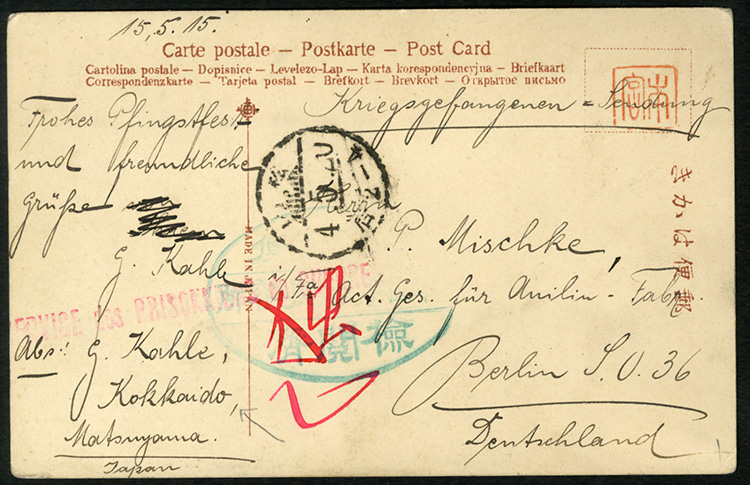 15.5.15.
Carte postale – Postkarte – Post Card
Cartolina postale – Dopisnice – Levelezo-Lap – Karta korespondencyjna – Briefkaart
Correspondenzkarte – Tarjeta postal – Brefkort – Brevkort – Открытое письмо
Kriegsgefangenen-Sendung
Frohes Pfingstfest
und freundliche
Grüße
G. Kahle
Abs: G. Kahle,
Kokkaido,
Matsuyama.
Japan
Herrn
P. Mischke,
Act. Ges. für Anilin-Fabr.
Berlin S.O. 36
Deutschland
きかは便郵
MADE IN
SERVICE des PRISONNIERS de GUERRE
閲檢